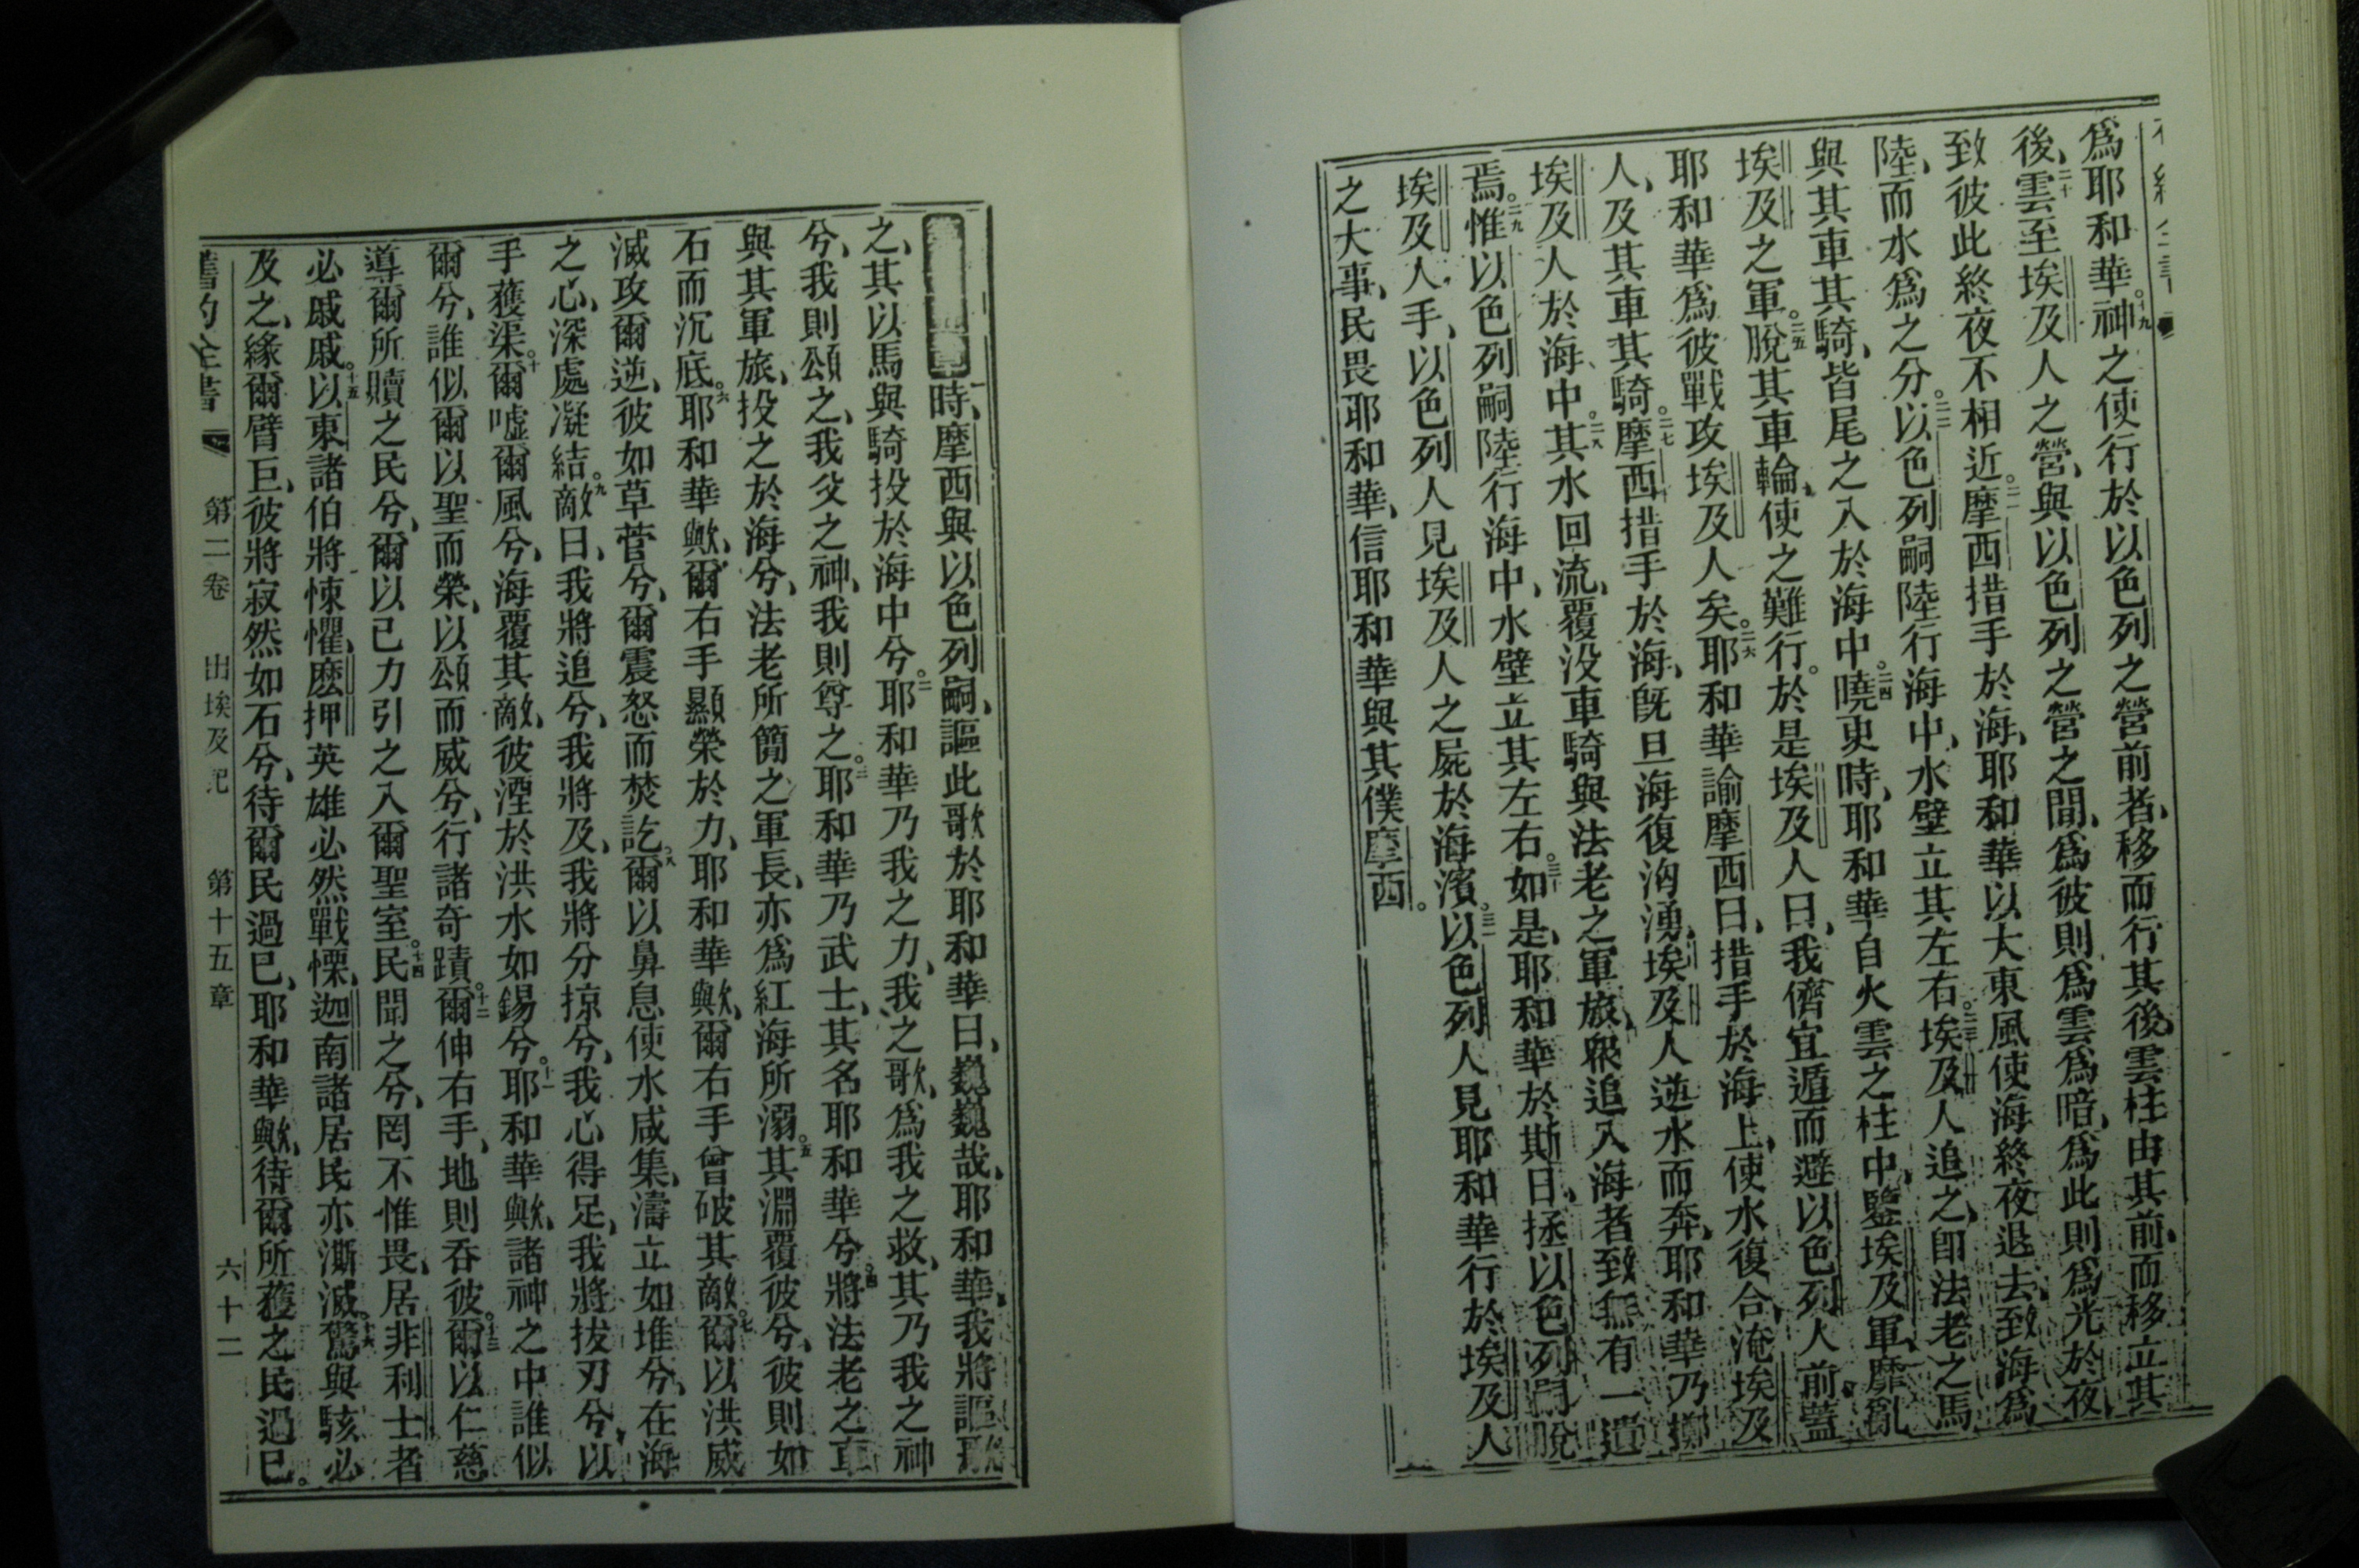 爲耶和華。十九神之使行於以色列之營前者、移而行其後、雲柱由其前、而移立其
後、二十雲至埃及人之營、與以色列之營之間、爲彼則爲雲爲暗、爲此則爲光於夜、
致彼此終夜不相近。二一摩西措手於海、耶和華以大東風使海終夜退去、致海爲
陸、而水爲之分。二二以色列嗣陸行海中、水壁立其左右。二三埃及人追之、卽法老之馬
與其車其騎、皆尾之入於海中。二四曉更時、耶和華自火雲之柱中、鑒埃及軍、靡亂
埃及之軍。二五脫其車輪、使之難行。於是埃及人曰、我儕宜遁而避以色列人前、蓋
耶和華爲彼戰攻埃及人矣。二六耶和華諭摩西曰、措手於海上、使水復合、淹埃及
人、及其車其騎。二七摩西措手於海、旣旦海復洶湧、埃及人逆水而奔、耶和華乃擲
埃及人於海中。二八其水回流、覆没車騎與法老之軍旅、衆追入海者致無有一遺
焉。二九惟以色列嗣陸行海中、水壁立其左右。三十如是、耶和華於斯日、拯以色列嗣脫
埃及人手、以色列人見埃及人之屍於海濱。三一以色列人見耶和華行於埃及人
之大事、民畏耶和華、信耶和華與其僕摩西。
時、摩西與以色列嗣、謳此歌於耶和華曰、巍巍哉、耶和華、我將謳歌
之、其以馬與騎投於海中兮。二耶和華乃我之力、我之歌、爲我之救、其乃我之神
兮、我則頌之、我父之神、我則尊之。三耶和華乃武士、其名耶和華兮。四將法老之車
與其軍旅、投之於海兮、法老所簡之軍長、亦爲紅海所溺。五其淵覆彼兮、彼則如
石而沉底。六耶和華歟、爾右手顯榮於力、耶和華歟、爾右手曾破其敵。七爾以洪威
滅攻爾逆、彼如草菅兮、爾震怒而焚訖。八爾以鼻息使水咸集、濤立如堆兮、在海
之心、深處凝結。九敵曰、我將追兮、我將及、我將分掠兮、我心得足、我將拔刃兮、以
手獲渠。十爾噓爾風兮、海覆其敵、彼湮於洪水如錫兮。十一耶和華歟、諸神之中誰似
爾兮、誰似爾以聖而榮、以頌而威兮、行諸奇蹟。十二爾伸右手、地則吞彼。十三爾以仁慈
導爾所贖之民兮、爾以己力引之入爾聖室。十四民聞之兮、罔不惟畏、居非利士者
必戚戚。十五以東諸伯將悚懼、麽押英雄必然戰慄、迦南諸居民亦澌滅。十六驚與駭必
及之、緣爾臂巨、彼將寂然如石兮、待爾民過已、耶和華歟、待爾所獲之民過已。
舊約全書 第二卷 出埃及記 第十五章 六十二